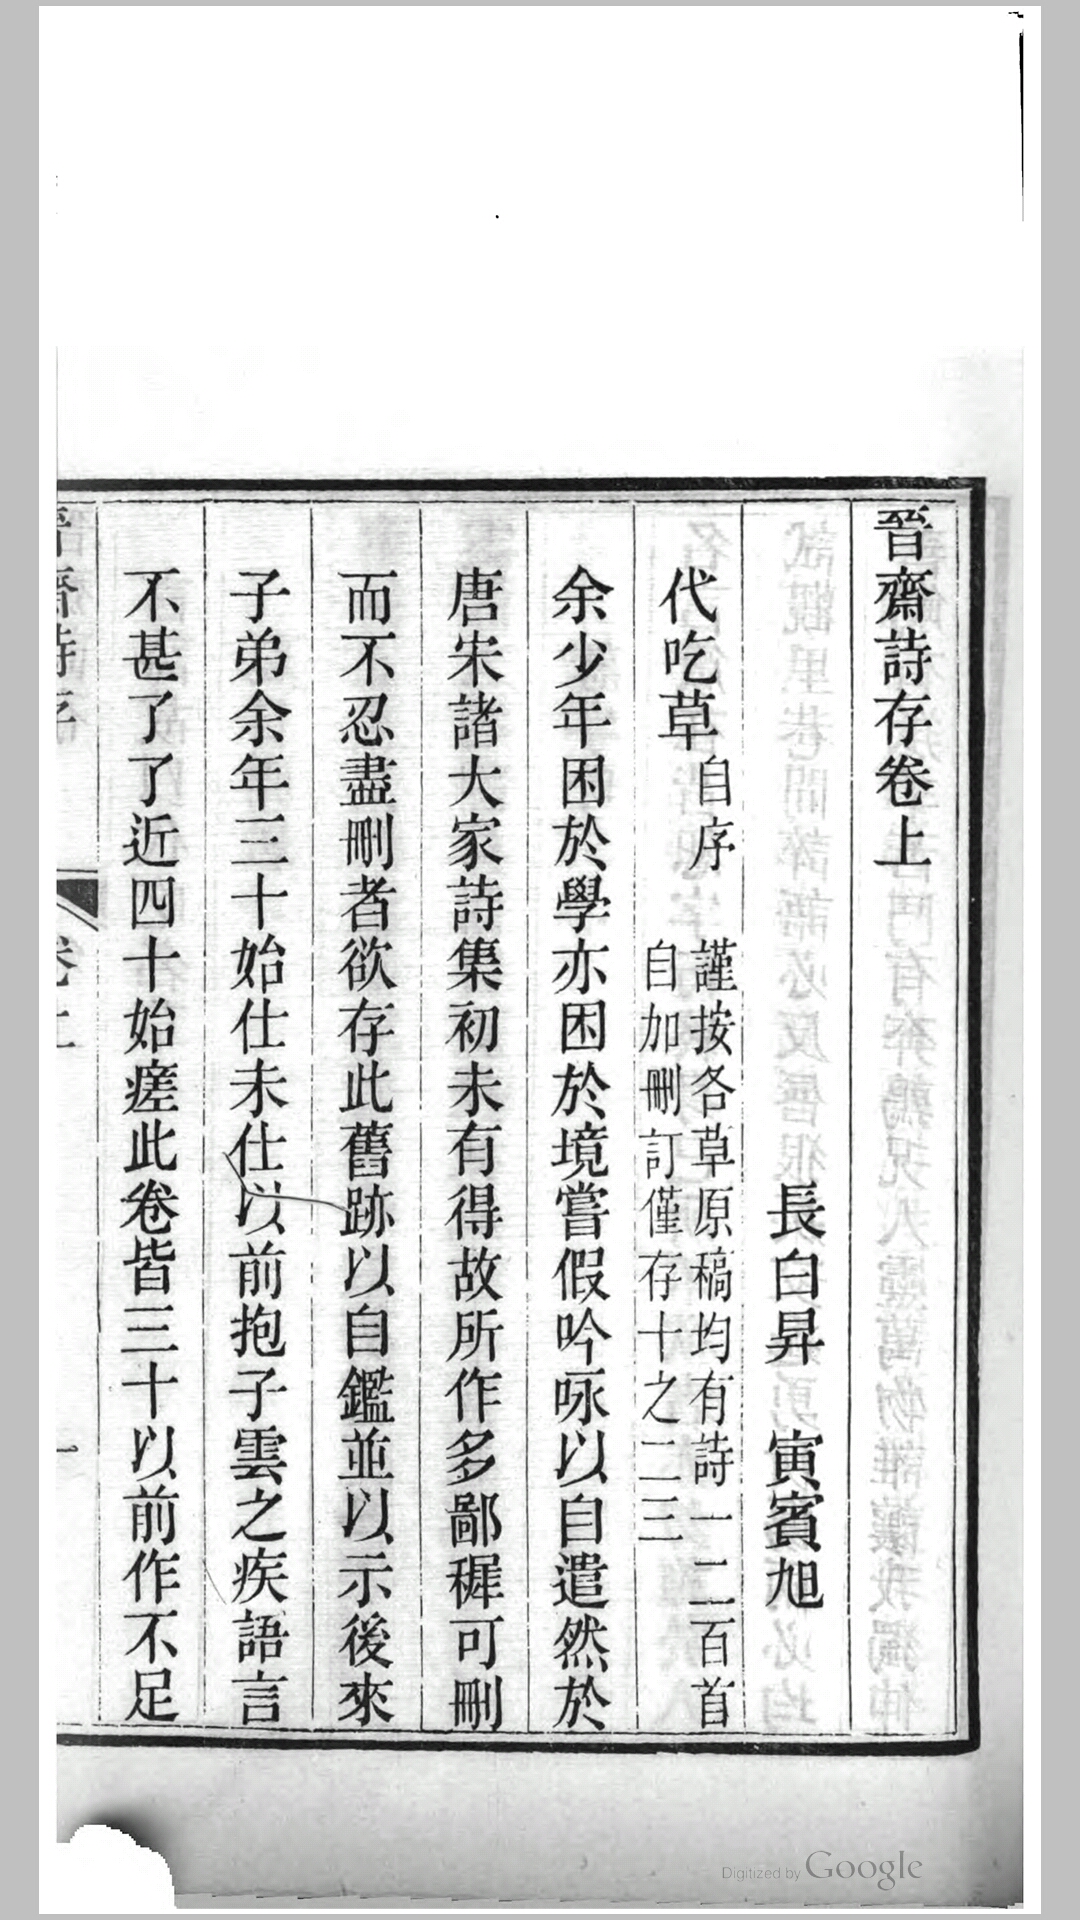 晉齋詩存卷上
長白昇　寅賓旭
代吃草自序　謹按各草原稿均有詩一二百首
自加刪訂僅存十之二三
余少年困於學亦困於境嘗假吟咏以自遣然於
唐宋諸大家詩集初未有得故所作多鄙穉可刪
而不忍盡刪者欲存此舊跡以自鑑並以示後來
子弟余年三十始仕未仕以前抱子雲之疾語言
不甚了了近四十始瘥此卷皆三十以前作不足
晉齋詩存　卷上　一
Digitized by Google